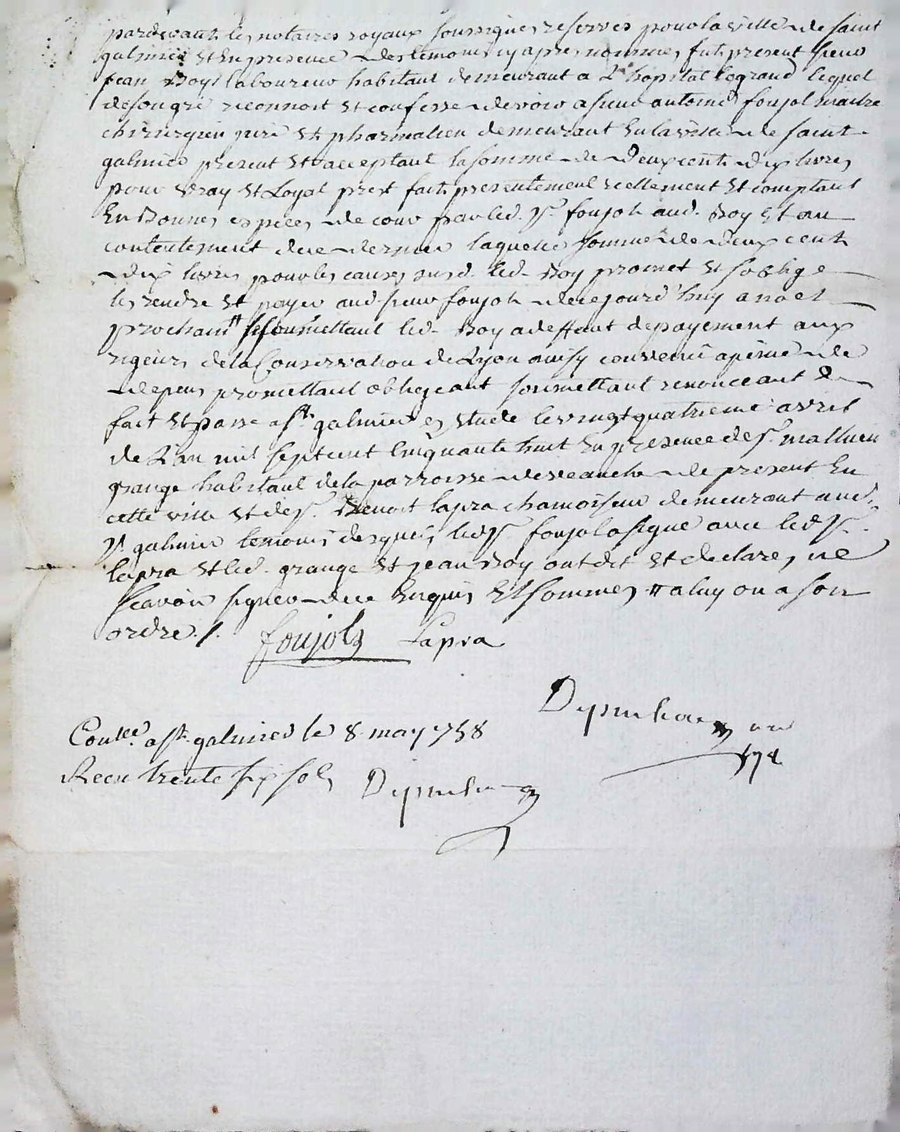 pardevant les notaires royaux soussignes reserves pour la ville de saint
galmier et en presence des temoins cy apres nommes fut present sieur
jean Boy laboureur habitant demeurant a L'hopital legrand lequel
de son gre reconnoit et confesse devoir a sieur antoine foujols maitre
chirurgien juré et pharmacien demeurant en la ville de saint
galmier present et acceptant la somme de deux cents dix livres
pour vray et Loyal prest fait presentement reellement et comptant
en Bonnes especes de cour par led. sr. foujols aud. Boy et au
contentement de ce dernier laquelle somme de deux cent
dix livres pour les causes susd. led. Boy promet et s'oblige
les rendre et payer aud. sieur foujols de ce jourd'huy a noel
prochain soumettant led. Boy a deffaut de payement aux
rigeurs de la Conservation de Lyon ainsy convenu a peine de
depens promettant obligeant soumettant renonceant &
fait et passe a st. galmier es etude le vingt quatrieme avril
de L'an mil sept cent cinquante huit en presence de sr. mathieu
grange habitant de la parroisse de de present en
cette ville et de sr. Benoit lapra chamoiseur demeurant aud.
st. galmier temoins desqueis led. sr. foujols a signe avec led. sr.
lapra et led. grange et jean Boy ont dit et declare ne
scavoir signer de ce enquis et sommes // a luy ou a son
ordre /.
foujols Lapra
Conlee. a st. galmier le 8 may 1758
Receu trente six sols